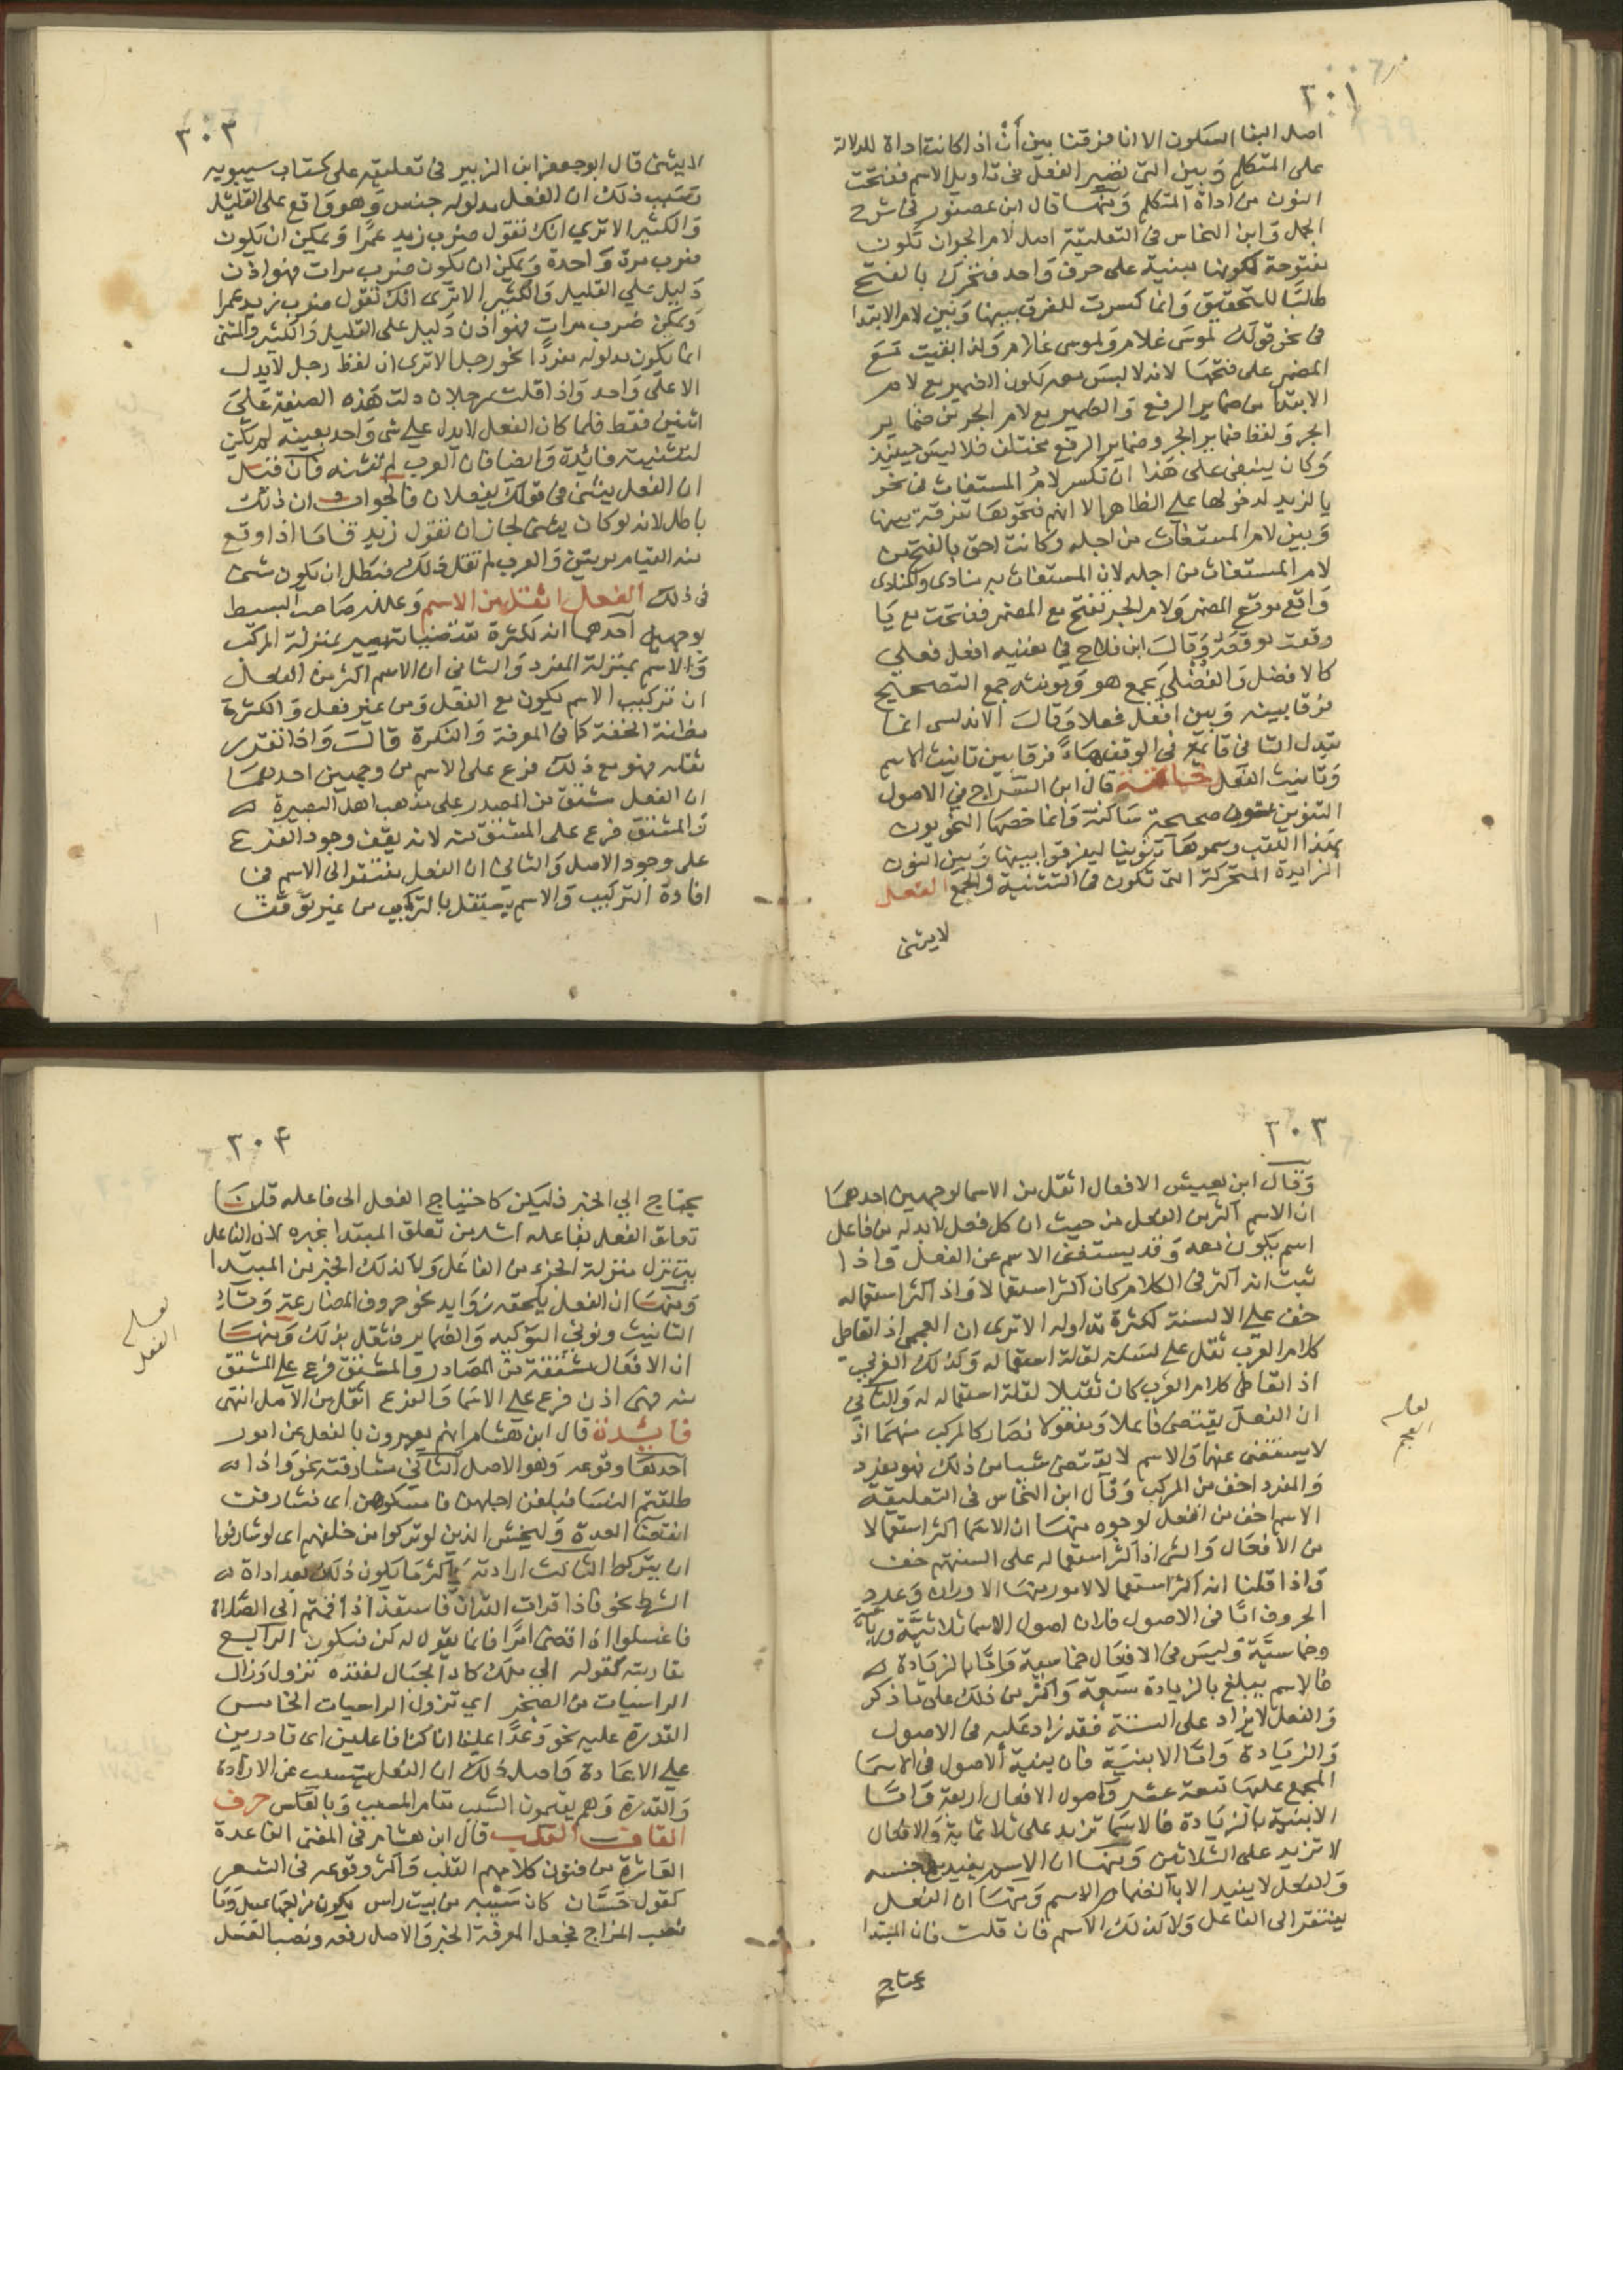 ٣٠١
اصل البنا السكون الا انا فرقنا بين أنْ اذا كانت اداة للدلالة
على المتكلم وبين التى تصير الفعل فى تاويل الاسم ففتحت
النون من اداة المتكلم ومنها قال ابن عصفور فى شرح
الجمل وابن النحاس فى التعليقة اصل لام الجر ان تكون
مفتوحة لكونها مبنية على حرف واحد فتحرك بالفتح
طلبا للتخفيف وانما كسرت للفرق بينها وبين لام الابتدا
فى نحو قولك لموسى غلام ولموسى غلام واذا بقيت مع
المضمر على فتحها لانه لا لبس معه لكون الضمير مع لام
الابتدا من ضماير الرفع والضمير مع لام الجر من ضماير
الجر ولفظ ضماير الجر وضماير الرفع مختلف فلا لبس حينئذ
وكان ينبغى على هذا ان تكسر لام المستغاث فى نحو
يا لزيد لدخولها على الظاهر الا انهم فتحوها تفرقة بينها
وبين لام المستغاث من اجله وكانت احق بالفتح من
لام المستغاث من اجله لان المستغاث به منادى والمنادى
واقع موقع المضمر ولام الجر تفتح مع المضمر ففتحت مع يا
وقعت موقعه وقال ابن فلاح فى مغنيه افعل فعلى
كالافضل والفضلى يجمع هو ومونثه جمع التصحيح
فرقا بينه وبين افعل فعلا وقال الاندلسى انما
تبدل التا فى قائمة فى الوقف هاءً فرقا بين تانيث الاسم
وتانيث الفعل خاتمة قال ابن السراج فى الاصول
التنوين نون صحيحة ساكنة وانما خصها النحويون
بهذا اللقب وسموها تنوينا ليفرقوا بينها وبين النون
الزايدة المتحركة التى تكون فى التثنية والجمع الفعل
لا يثنى
٣٠٢
لا يثنى قال ابو جعفر ابن الزبير فى تعليقه على كتاب سيبويه
وسبب ذلك ان الفعل مدلوله جنس وهو واقع على القليل
والكثير الا ترى انك تقول ضرب زيد عمرا ويمكن ان يكون
ضرب مرة واحدة ويمكن ان يكون ضرب مرات فهو اذن
دليل على القليل والكثير الا ترى انك تقول ضرب زيد عمرا
ويمكن ضرب مرات فهو اذن دليل على القليل والكثير والمثنى
انما يكون مدلوله مفردا نحو رجل الا ترى ان لفظ رجل لا يدل
الا على واحد واذا قلت رجلان دلت هذه الصيغة على
اثنين فقط فلما كان الفعل لا يدل على شى واحد بعينه لم يكن
لتثنيته فائدة وايضا فان العرب لم تثنه فان قيل
ان الفعل يثنى فى قولك يفعلان فالجواب ان ذلك
باطل لانه لو كان يثنى لجاز ان تقول زيد قاما اذا وقع
منه القيام مرتين والعرب لم تقل ذلك فبطل ان يكون شى
فى ذلك الفعل اثقل من الاسم وعلله صاحب البسيط
بوجهين احدهما انه لكثرة مقتضياته يصير بمنزلة المركب
والاسم بمنزلة المفرد والثانى ان الاسم اكثر من الفعل
ان تركيب الاسم يكون مع الفعل ومن غير فعل والكثرة
مظنة الخفة كما فى المعرفة والنكرة قال واذا تقرر
ثقله فهو مع ذلك فرع على الاسم من وجهين احدهما
ان الفعل مشتق من المصدر على مذهب اهل البصيرة
والمشتق فرع على المشتق منه لانه يقف وجود الفرع
على وجود الاصل والثانى ان الفعل يفتقر الى الاسم فى
افادة التركيب والاسم يستقل بالتركيب من غير توقف
٣٠٣
وقال ابن يعيش الافعال اثقل من الاسما لوجهين احدهما
ان الاسم اكثر من الفعل من حيث ان كل فعل لا بد له من فاعل
اسم يكون معه وقد يستغنى الاسم عن الفعل واذا
ثبت انه اكثر فى الكلام كان اكثر استعمالا واذا كثر استعماله
خف على الالسنة لكثرة تداوله الا ترى ان العجمى اذا تعاطى
كلام العرب ثقل على لسانه لقلة استعماله وكذلك العربى
اذا تعاطى كلام العرب كان ثقيلا لقلة استعماله له والثانى
ان الفعل يقتضى فاعلا ومفعولا فصار كالمركب منهما اذ
لا يستغنى عنها والاسم لا يقتضى شيا من ذلك فهو مفرد
والمفرد اخف من المركب وقال ابن النحاس فى التعليقة
الاسم اخف من الفعل لوجوه منها ان الاسما اكثر استعمالا
من الافعال والشى اذا كثر استعماله على السنتهم خف
واذا قلنا انه اكثر استعمالا لامور منها الاوزان وعدد
الحروف اما فى الاصول فلان اصول الاسما ثلاثية ورباعية
وخماسية وليس فى الافعال خماسية واما بالزيادة
فالاسم يبلغ بالزيادة سبعة واكثر من ذلك على ما ذكر
والفعل لا يزاد على الستة فقد زاد عليه فى الاصول
والزيادة واما الابنية فان ابنية الاصول فى الاسما
المجمع عليها تسعة عشر واصول الافعال اربعة واما
الابنية بالزيادة فالاسما تزيد على ثلاثماية والافعال
لا تزيد على الثلاثين ومنها ان الاسم يفيد مع جنسه
والفعل لا يفيد الا بانضمام الاسم ومنها ان الفعل
يفتقر الى الفاعل ولا كذلك الاسم فان قلت فان المبتدا
يحتاج
٣٠٤
يحتاج الى الخبر فليكن كاحتياج الفعل الى فاعله قلنا
تعلق الفعل بفاعله اشد من تعلق المبتدا بخبره لان الفاعل
يتنزل منزلة الجزء من الفاعل ولا كذلك الخبر من المبتدا
ومنها ان الفعل يلحقه زوايد نحو حروف المضارعة وتا
التانيث ونونى التوكيد والضماير فثقل بذلك ومنها
ان الافعال مشتقة من المصادر والمشتق فرع على المشتق
منه فهى اذن فرع على الاسما والفرع اثقل من الاصل انتهى
فائدة قال ابن هشام انهم يعبرون بالفعل عن امور
احدها وقوعه وهو الاصل الثانى مشارفته نحو واذا
طلقتم النسا فبلغن اجلهن فامسكوهن اى فشارفن
انقضا العدة وليخش الذين لو تركوا من خلفهم اى لو شارفوا
ان يتركوا الثالث ارادته واكثر ما يكون ذلك بعد اداة
الشرط نحو فاذا قرات القران فاستعذ اذا قمتم الى الصلاة
فاغسلوا اذا قضى امرا فانما يقول له كن فيكون الرابع
مقاربته كقوله الى ملك كاد الجبال لفقده تزول وزال
الراسيات من الصخر اى تزول الراسيات الخامس
القدرة عليه نحو وعدا علينا انا كنا فاعلين اى قادرين
على الاعادة واصل ذلك ان الفعل يتسبب عن الارادة
والقدرة وهم يقيمون السبب مقام المسبب وبالعكس حرف
القاف القلب قال ابن هشام فى المغنى القاعدة
العاشرة من فنون كلامهم القلب واكثر وقوعه فى الشعر
كقول حسان كان سبيه من بيت راس يكون مزاجها عسل وما
نصب المزاج فجعل المعرفة الخبر والاصل رفعه ونصب العسل